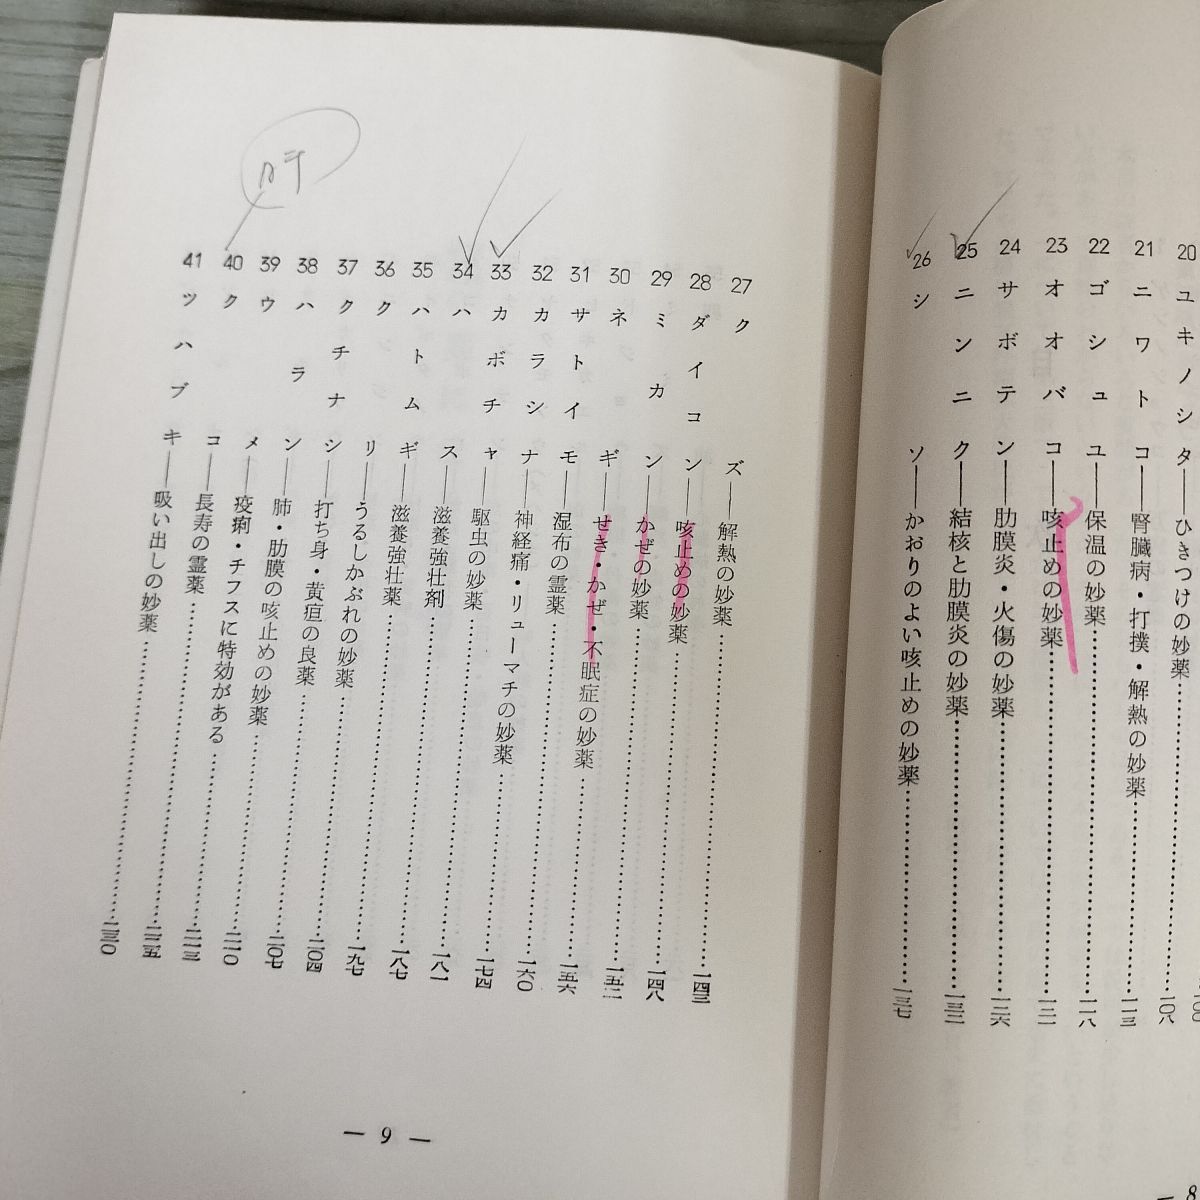 20 ユキノシタ──ひきつけの妙薬……一〇八
21 ニワトコ──腎臓病・打撲・解熱の妙薬……一一三
22 ゴシュユ──保温の妙薬……一一八
23 オオバコ──咳止めの妙薬……一二一
24 サボテン──肋膜炎・火傷の妙薬……一二六
25 ニンニク──結核と肋膜炎の妙薬……一三二
26 シソ──かおりのよい咳止めの妙薬……一三七
— 8
27 クズ──解熱の妙薬……一四三
28 ダイコン──咳止めの妙薬……一四八
29 ミカン──かぜの妙薬……一五二
30 ネギ──せき・かぜ・不眠症の妙薬……一五六
31 サトイモ──湿布の霊薬……一六〇
32 カラシナ──神経痛・リューマチの妙薬……一七四
33 カボチャ──駆虫の妙薬……一八一
34 ハス──滋養強壮剤……一八七
35 ハトムギ──滋養強壮薬……一九七
36 クリ──うるしかぶれの妙薬……二〇四
37 クチナシ──打ち身・黄疸の良薬……二〇七
38 ハラン──肺・肋膜の咳止めの妙薬……二一〇
39 ウメ──疫痢・チフスに特効がある……二一三
40 クコ──長寿の霊薬……二二五
41 ツハブキ──吸い出しの妙薬……二三〇
肝
— 9 —